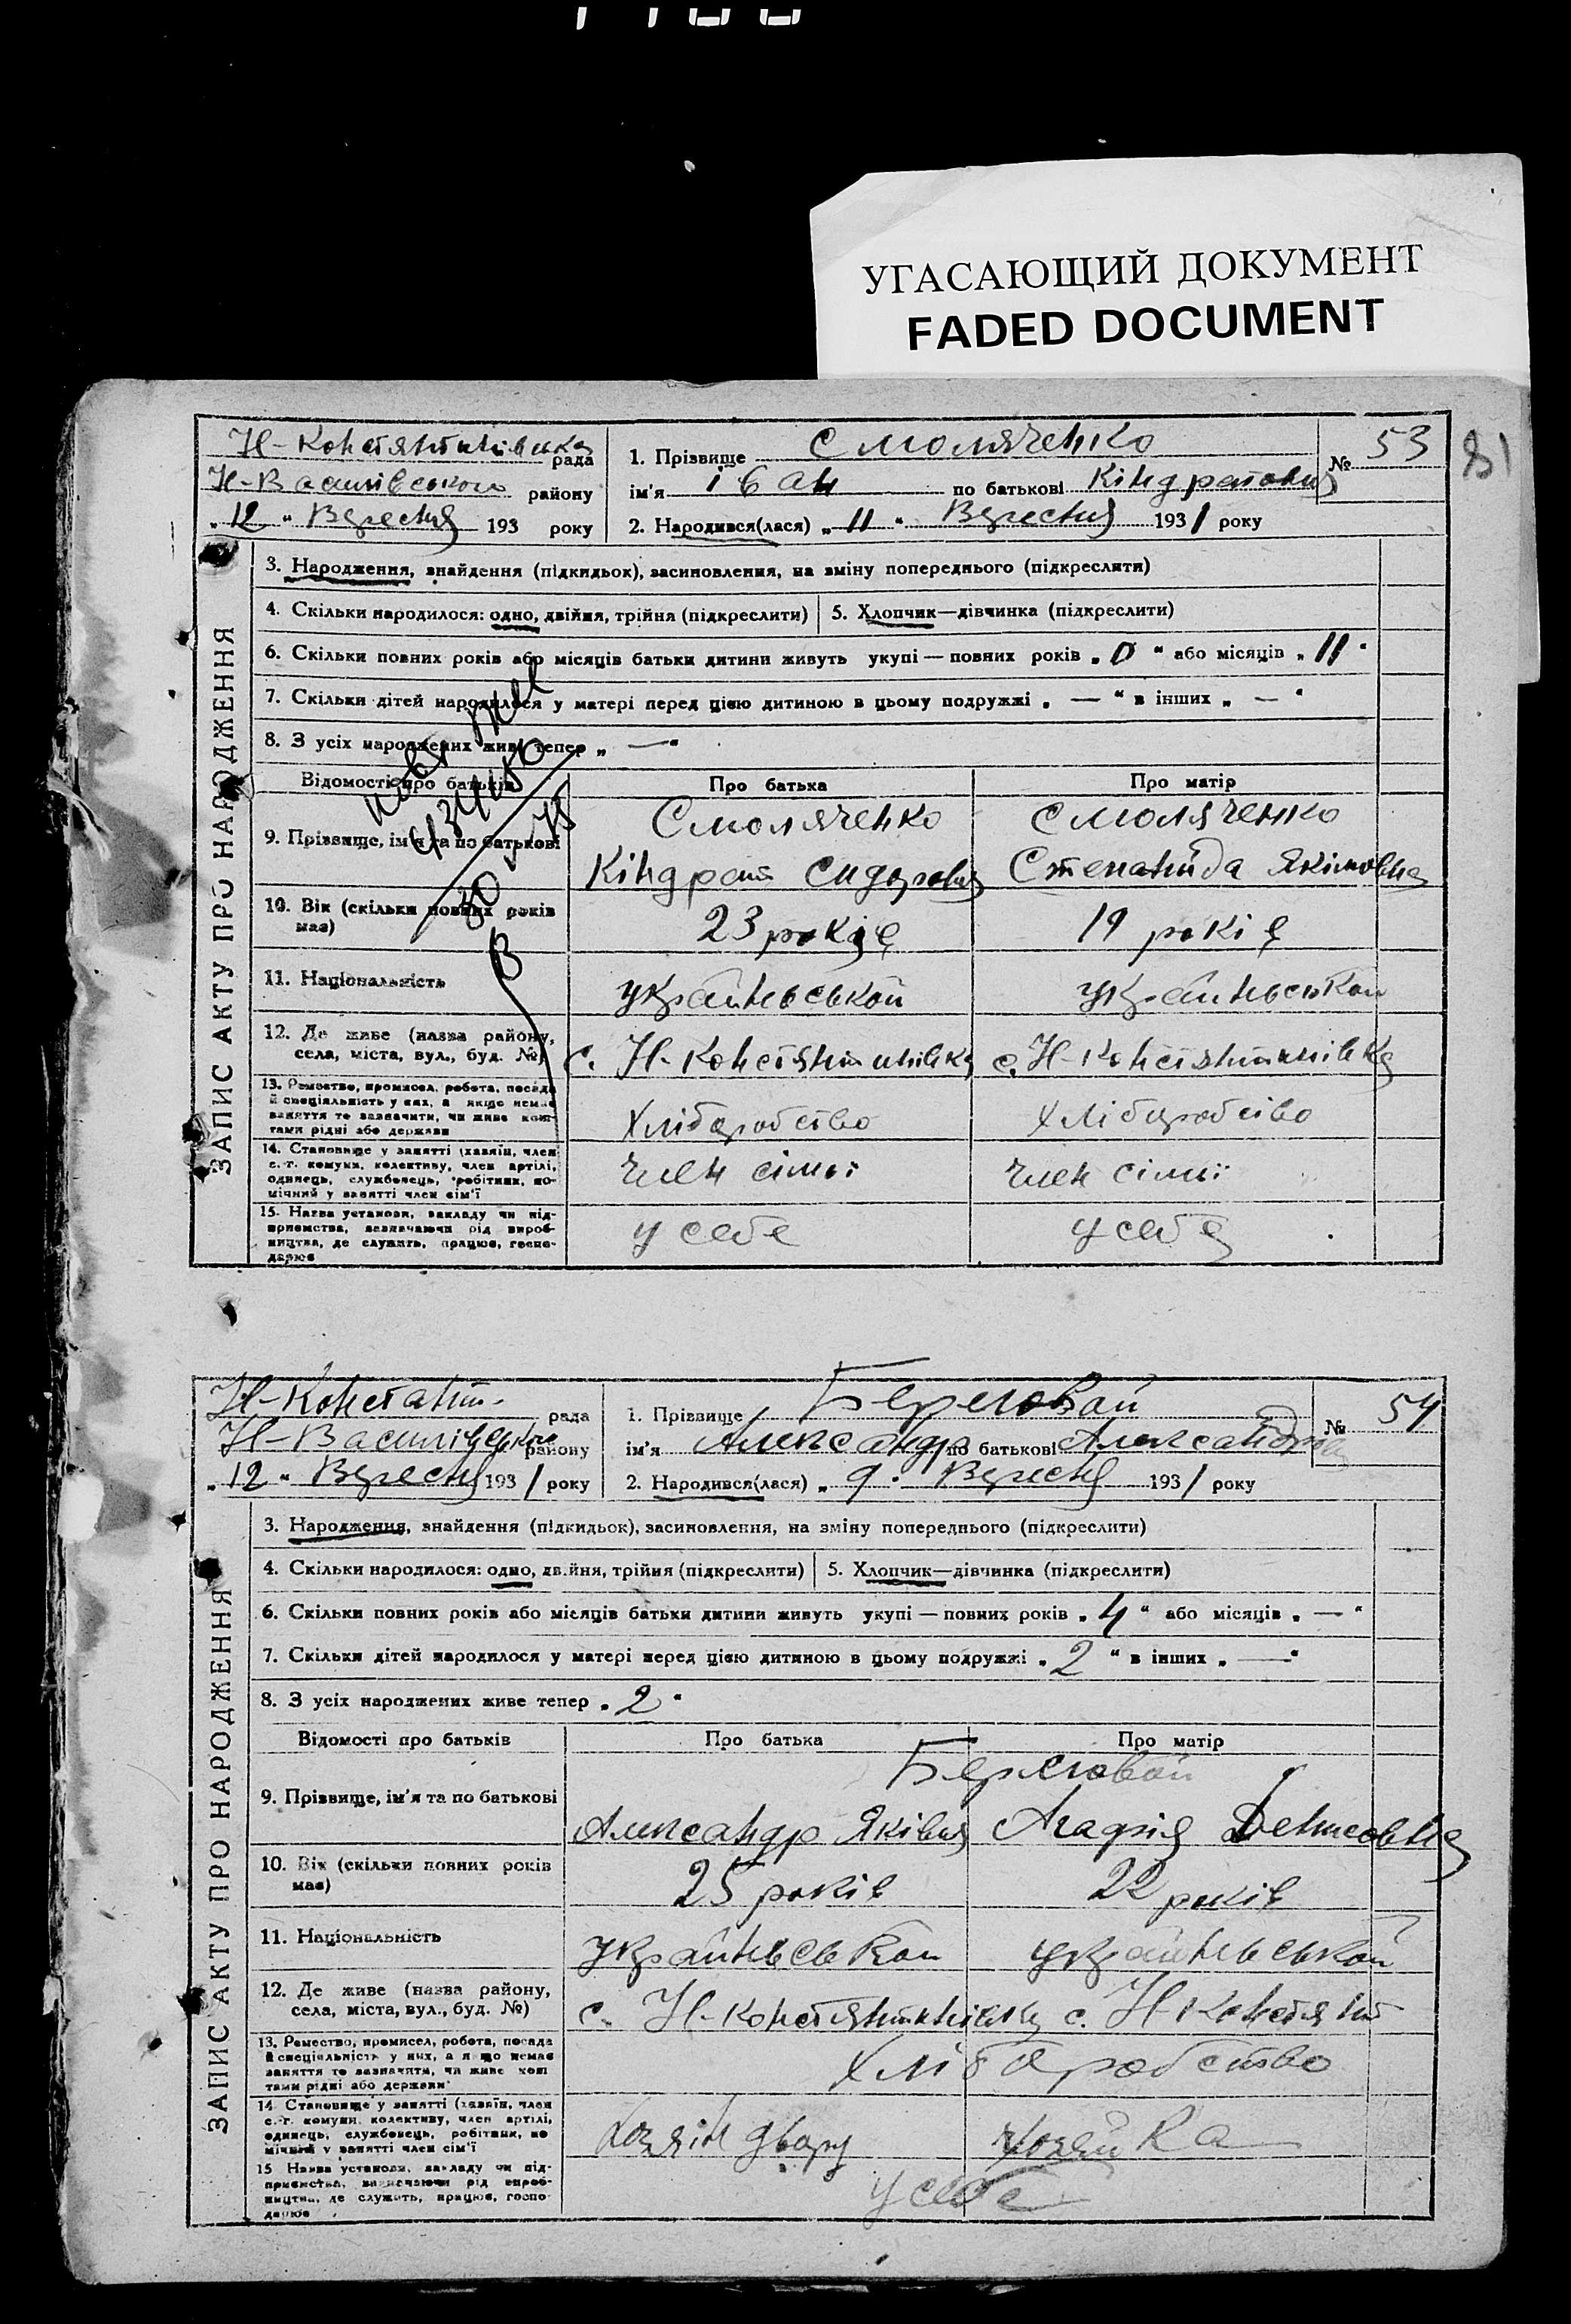 УГАСАЮЩИЙ ДОКУМЕНТ
FADED DOCUMENT
81
ЗАПИС АКТУ ПРО НАРОДЖЕННЯ
Н-Констянтинівка рада
Н-Василівського району
„12“ Вересня 193 року
1. Прізвище Смоляченко
ім'я Іван по батькові Кіндратович
№ 53
2. Народився(лася) „11“ Вересня 1931 року
3. Народження, знайдення (підкидьок), засиновлення, на зміну попереднього (підкреслити)
4. Скільки народилося: одно, двійня, трійня (підкреслити) 5. Хлопчик—дівчинка (підкреслити)
6. Скільки повних років або місяців батьки дитини живуть укупі — повних років „0“ або місяців „11“
7. Скільки дітей народилося у матері перед цією дитиною в цьому подружжі „—“ в інших „—“
8. З усіх народжених живе тепер „—“
Відомості про батьків Про батька Про матір
9. Прізвище, ім'я та по батькові
Смоляченко Смоляченко
Кіндрат Сидорович Степанида Якімовна
10. Вік (скільки повних років має) 23 років 19 років
11. Національність українськой українськой
12. Де живе (назва району, села, міста, вул., буд. №) с. Н-Констянтинівка с. Н-Констянтинівка
13. Ремество, промисел, робота, посада й спеціяльність у них, а якщо немає заняття то зазначити, чи живе коштами рідні або держави
Хліборобство Хліборобство
14. Становище у занятті (хазяїн, член с.-г. комуни, колективу, член артілі, одинець, службовець, робітник, помічний у занятті член сім'ї
член сімьї член сімьї
15. Назва установи, закладу чи підприємства, зазначаючи рід виробництва, де служить, працює, господарює
у себе у себе
ЗАПИС АКТУ ПРО НАРОДЖЕННЯ
Н-Констант. рада
Н-Василівського району
„12“ Вересня 1931 року
1. Прізвище Береговай
ім'я Александр по батькові Александров
№ 54
2. Народився(лася) „9“ Вересня 1931 року
3. Народження, знайдення (підкидьок), засиновлення, на зміну попереднього (підкреслити)
4. Скільки народилося: одно, двійня, трійня (підкреслити) 5. Хлопчик—дівчинка (підкреслити)
6. Скільки повних років або місяців батьки дитини живуть укупі — повних років „4“ або місяців „—“
7. Скільки дітей народилося у матері перед цією дитиною в цьому подружжі „2“ в інших „—“
8. З усіх народжених живе тепер „2“
Відомості про батьків Про батька Про матір
9. Прізвище, ім'я та по батькові
Береговай
Александр Яківич Агафія Денисовна
10. Вік (скільки повних років має) 25 років 22 років
11. Національність українськой українськой
12. Де живе (назва району, села, міста, вул., буд. №) с. Н-Констянтинівка с. Н-Констянт
13. Ремество, промисел, робота, посада й спеціяльність у них, а якщо немає заняття то зазначити, чи живе коштами рідні або держави
Хліборобство
14. Становище у занятті (хазяїн, член с.-г. комуни, колективу, член артілі, одинець, службовець, робітник, помічний у занятті член сім'ї
хозяін двору хозяйка
15. Назва установи, закладу чи підприємства, зазначаючи рід виробництва, де служить, працює, господарює
у себе